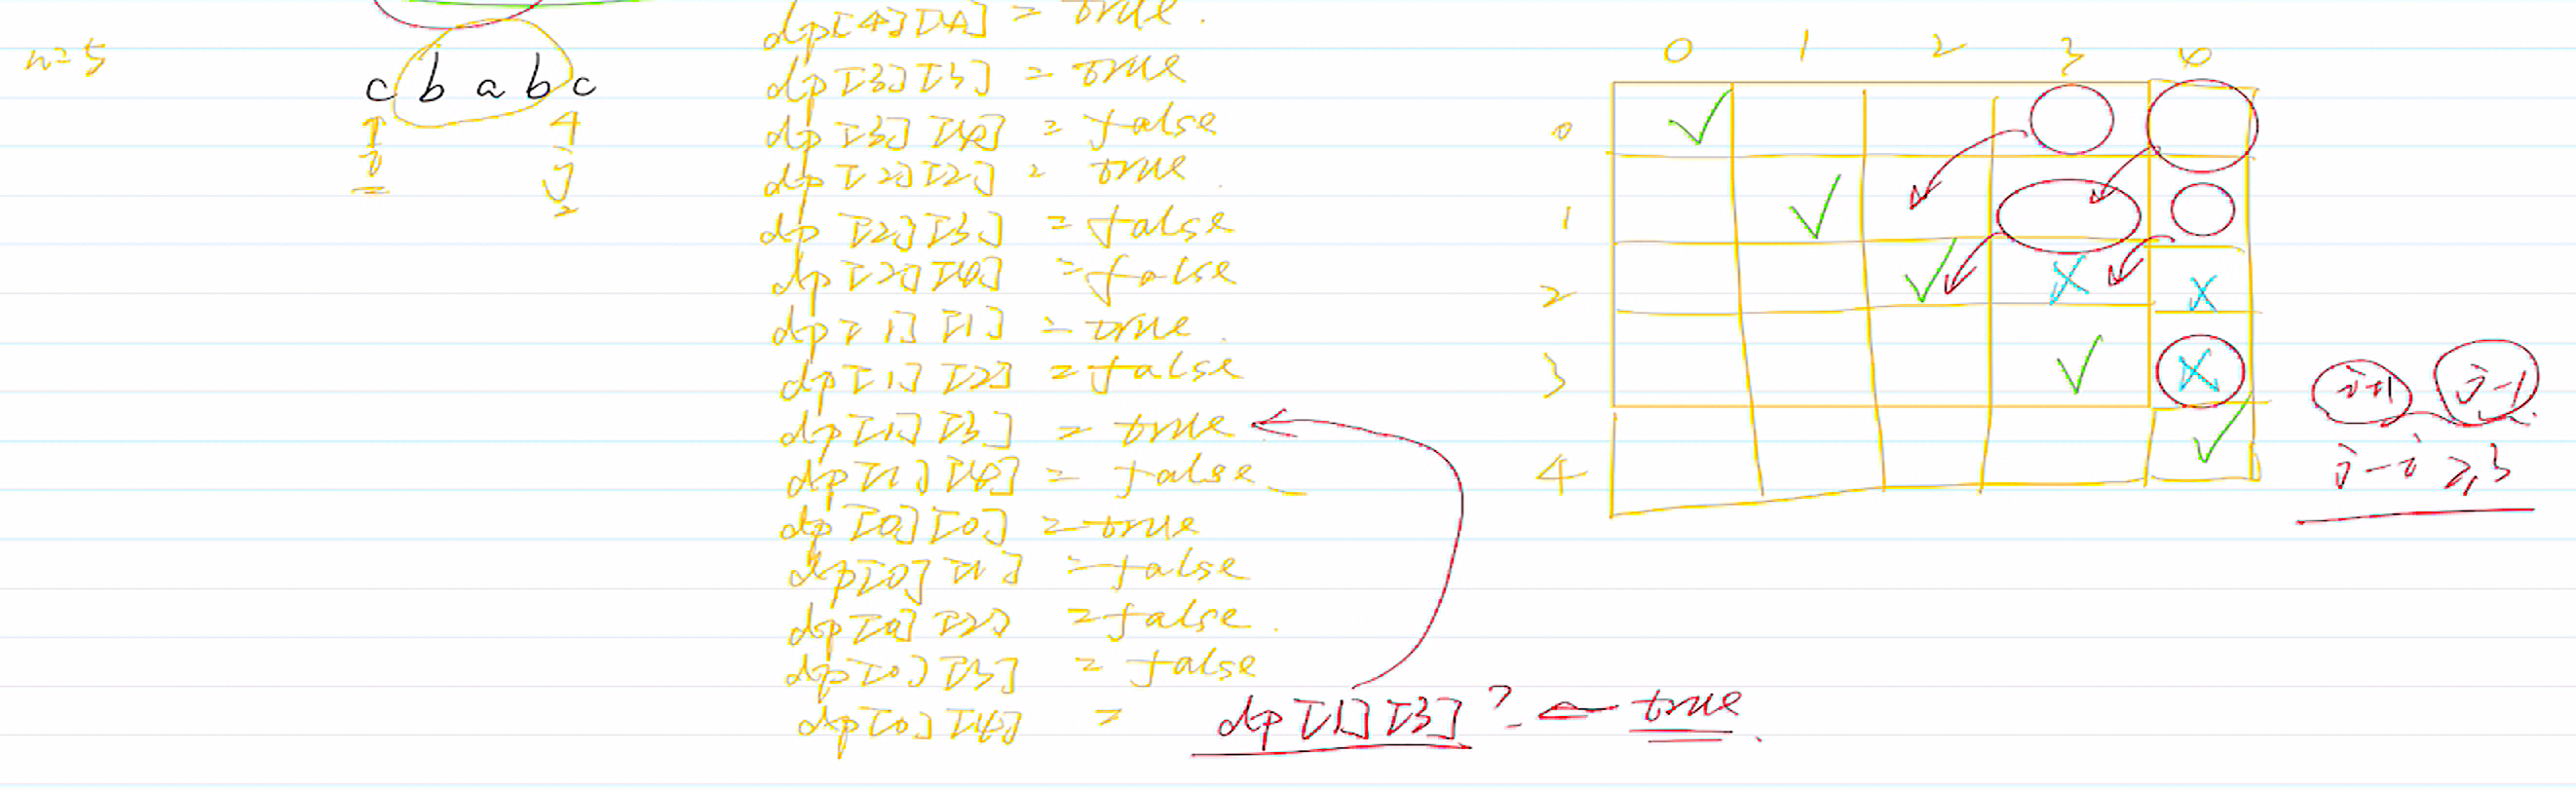 n=5
c b a b c
i
4
j
dp[4][4] = true.
dp[3][3] = true
dp[3][4] = false
dp[2][2] = true
dp[2][3] = false
dp[2][4] = false
dp[1][1] = true
dp[1][2] = false
dp[1][3] = true
dp[1][4] = false
dp[0][0] = true
dp[0][1] = false
dp[0][2] = false
dp[0][3] = false
dp[0][4] = dp[1][3]? ← true
0 1 2 3 4
0 ✓
1 ✓
2 ✓ × ×
3 ✓ ×
4 ✓
i+1 j-1
j-i ≥ 3